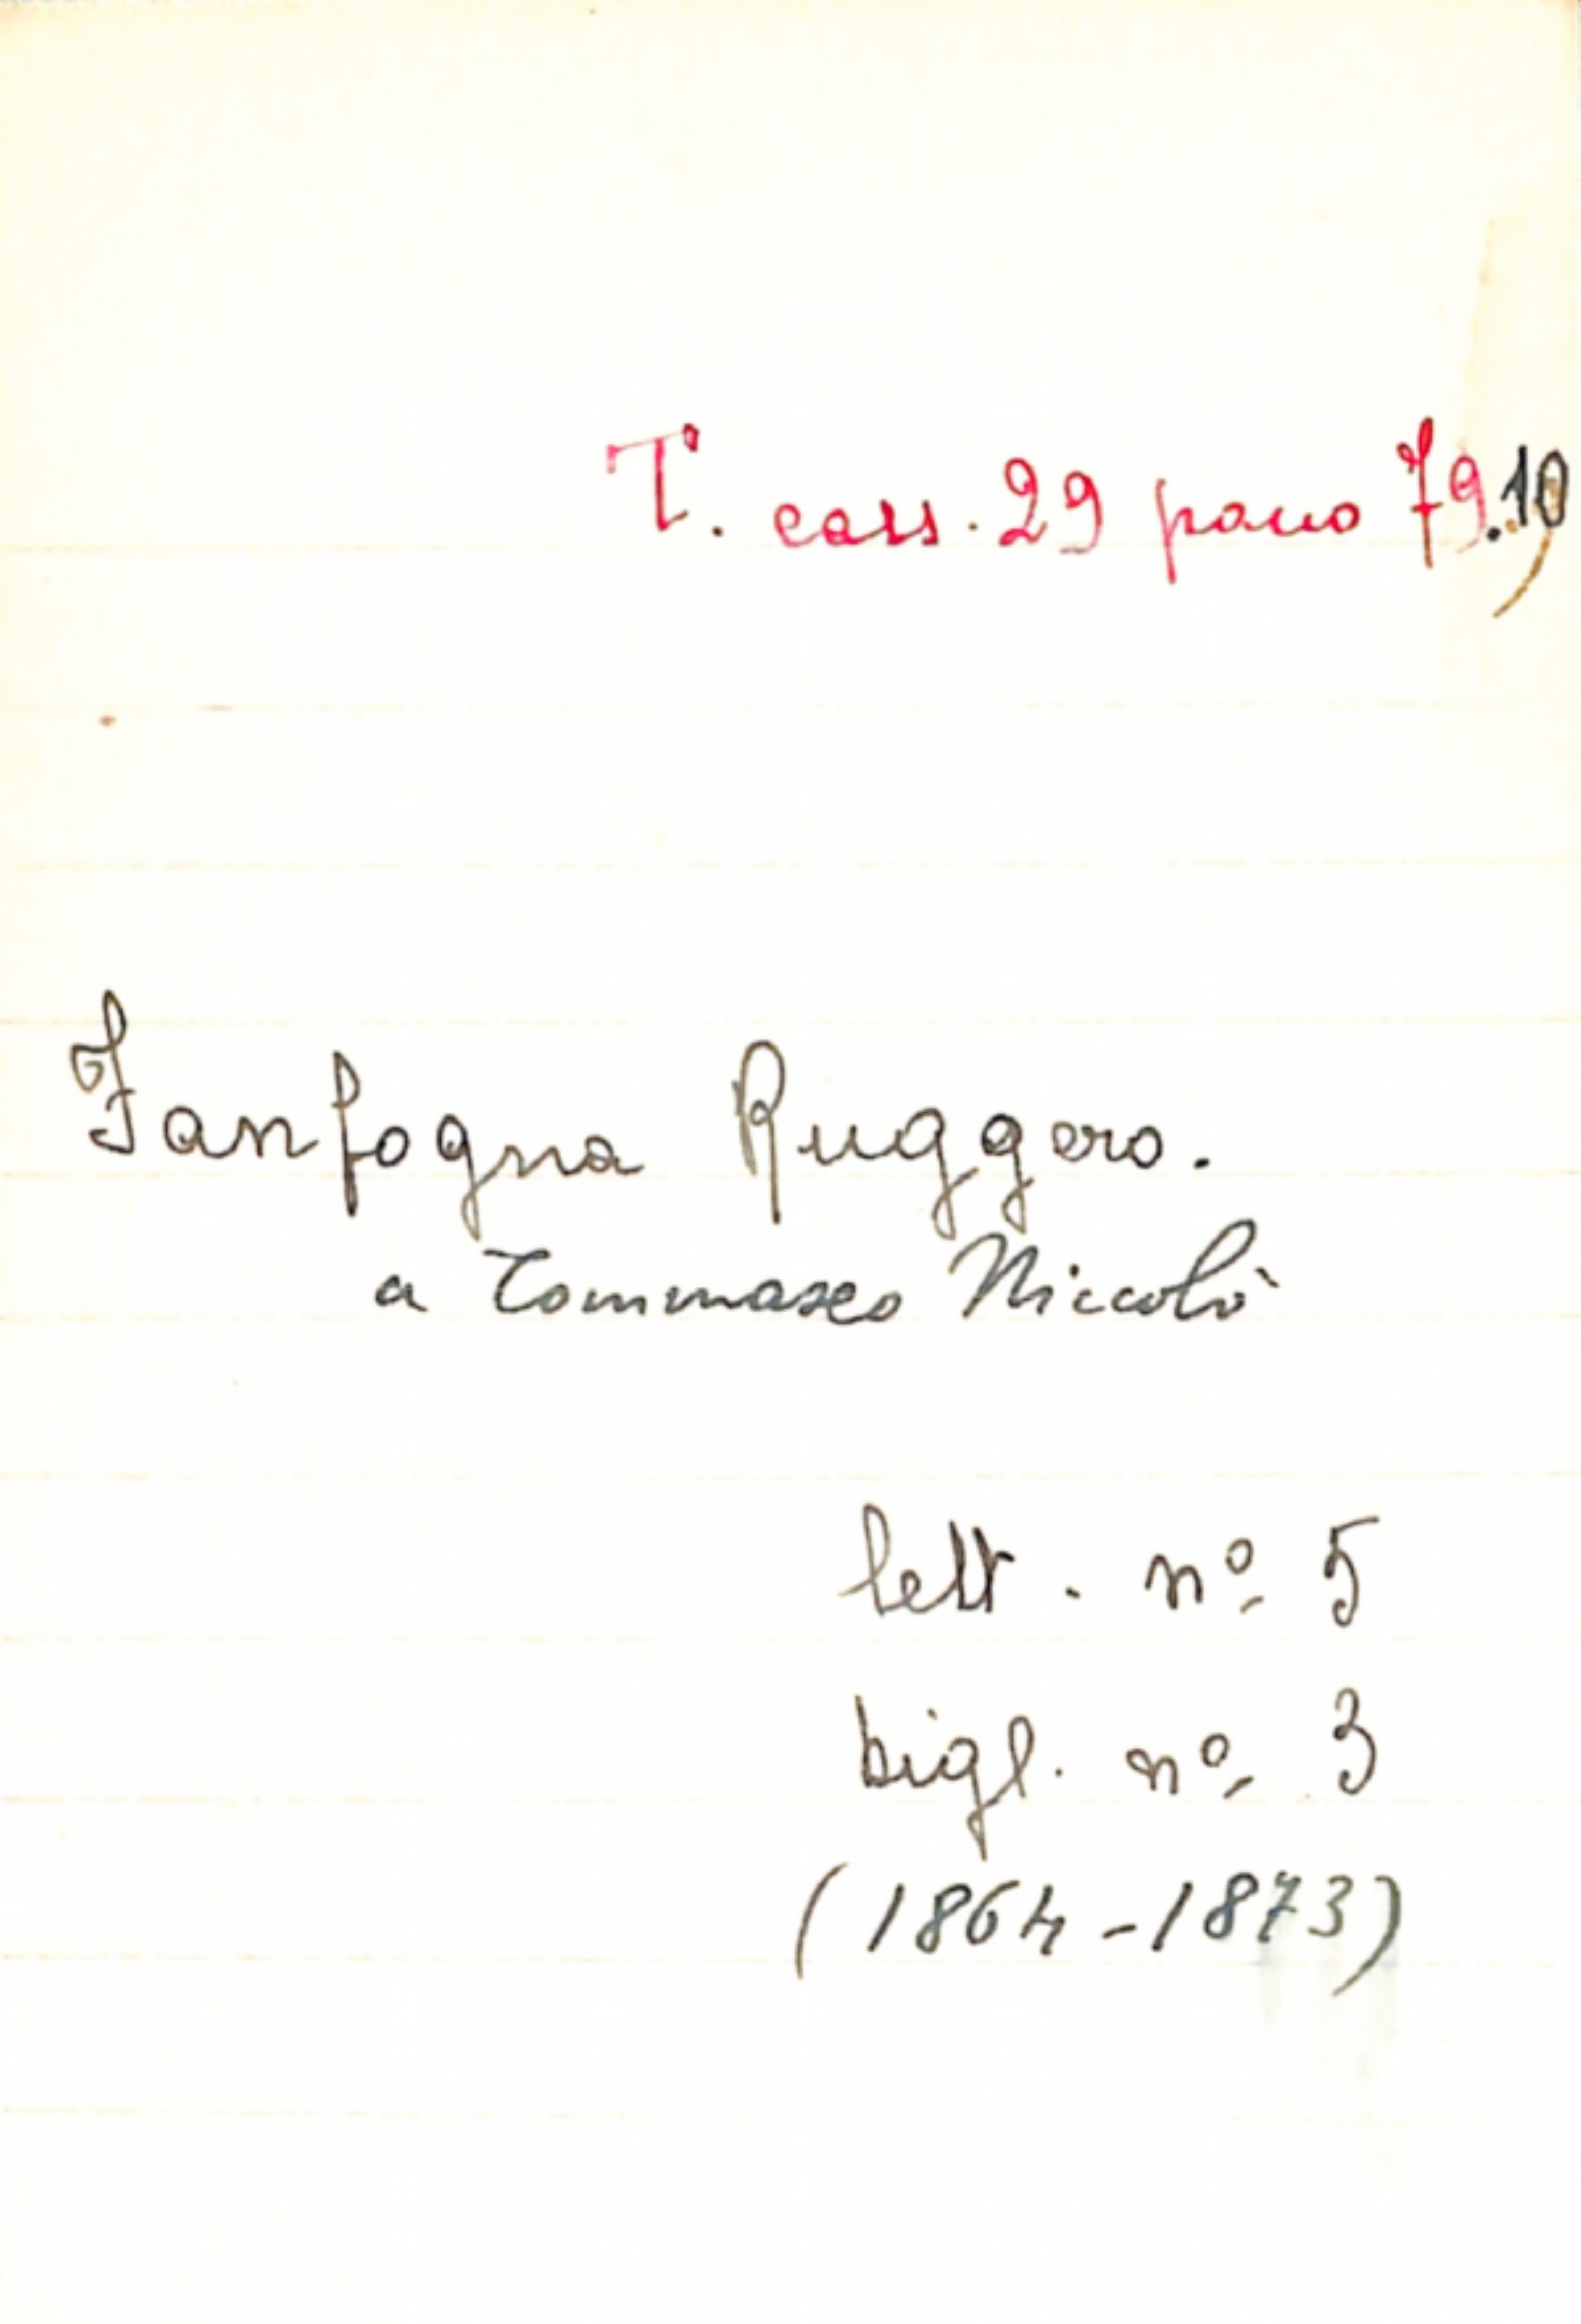 T. cass. 29 pacco 79.10
Fanfogna Ruggero.
a Tommaseo Niccolò
lett. nº 5
bigl. nº 3
(1864-1873)